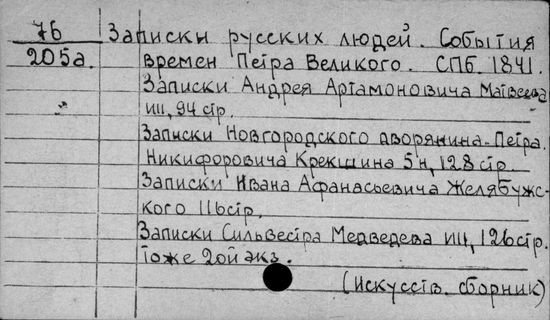 76 Записки русских людей. События
205а. времен Петра Великого. СПб. 1841.
Записки Андрея Артамоновича Матвеева
94 стр.
Записки Новгородского дворянина-Петра.
Никифоровича Крекшина 128 стр
Записки Ивана Афанасьевича Желябужс-
кого 116стр.
Записки Сильвестра Медведева 126стр.
Тоже 2ой экз.
(Искусств. сборник)